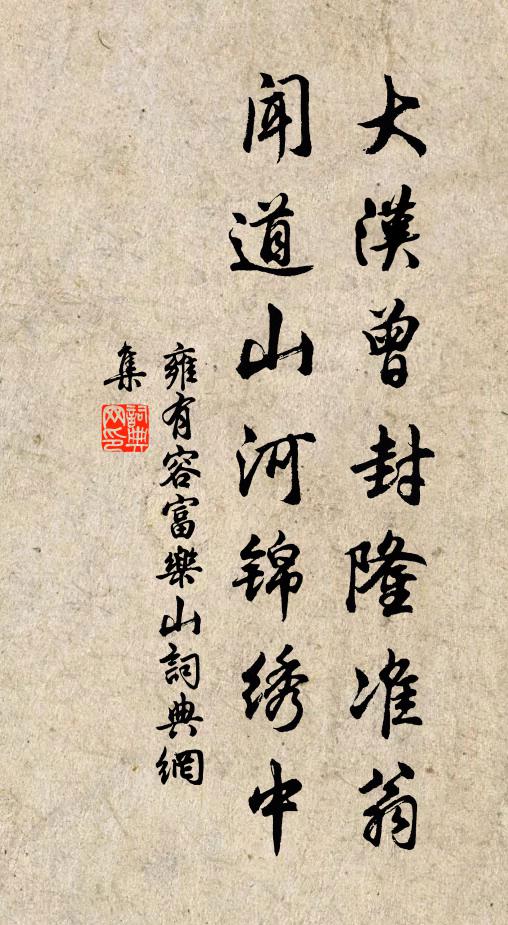 大漢曾封隆准翁
聞道山河锦绣中
雍有容富樂山詞典網
集
詞典
网印